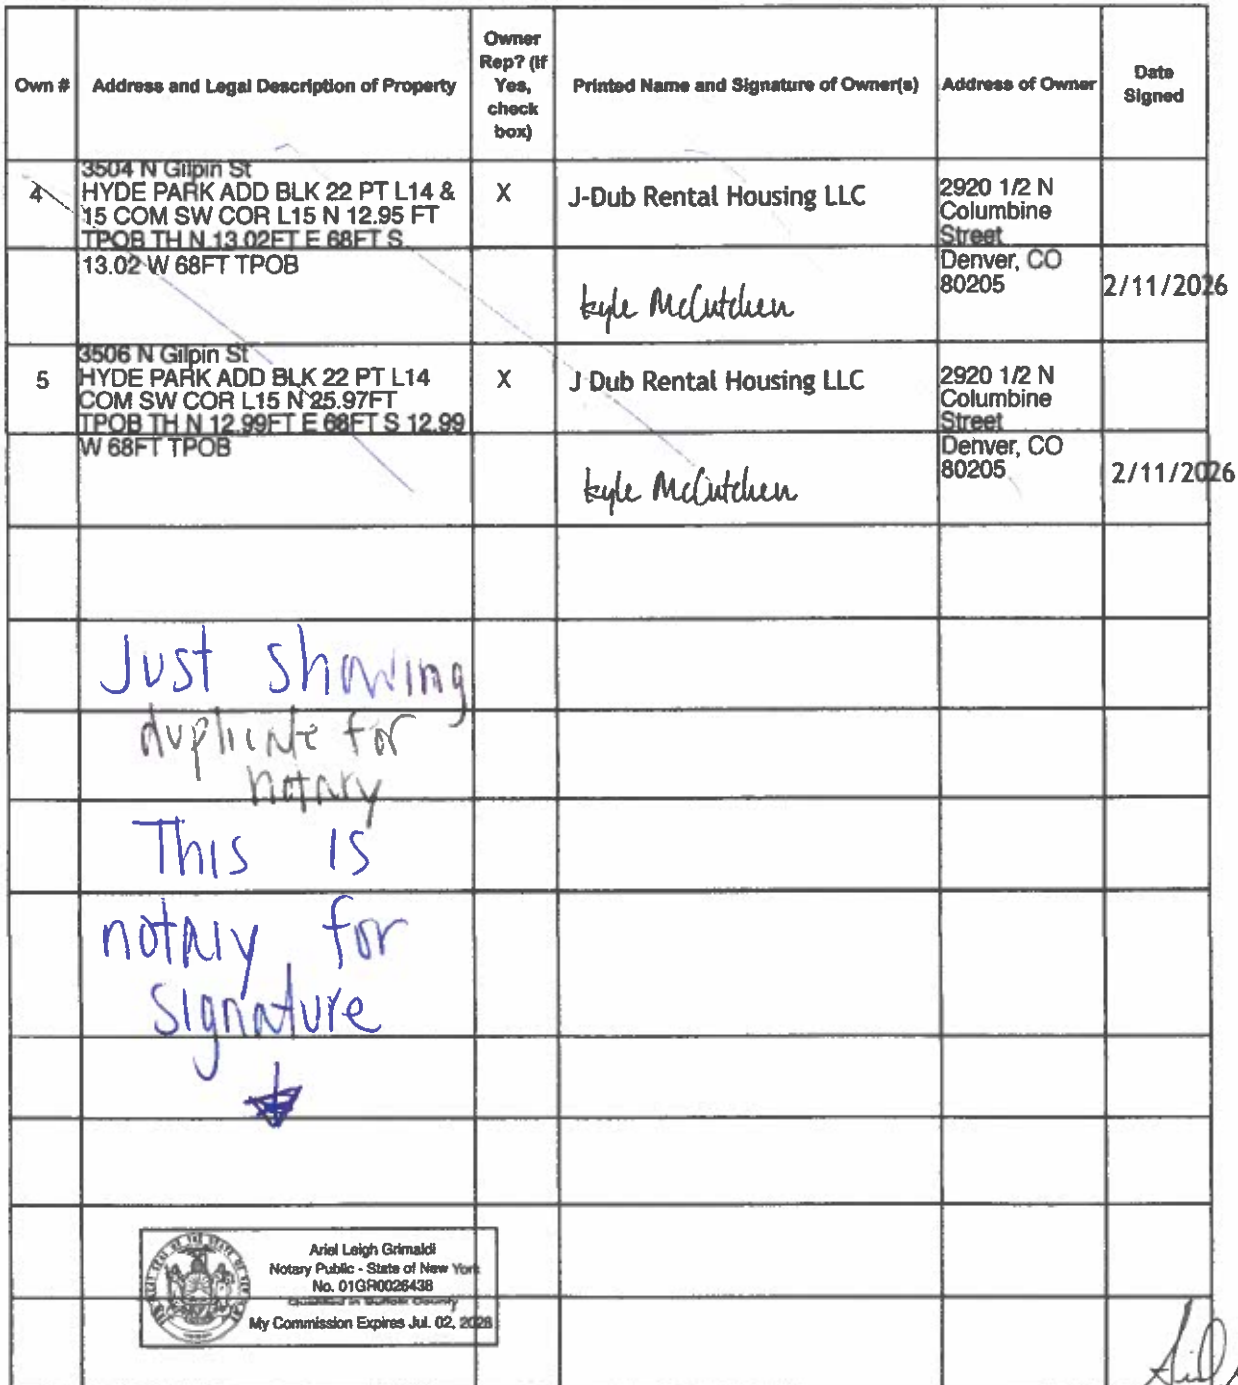 Own #
Address and Legal Description of Property
Owner
Rep? (If
Yes,
check
box)
Printed Name and Signature of Owner(s)
Address of Owner
Date
Signed
4
3504 N Gilpin St
HYDE PARK ADD BLK 22 PT L14 &
15 COM SW COR L15 N 12.95 FT
TPOB TH N 13.02FT E 68FT S
13.02 W 68FT TPOB
X
J-Dub Rental Housing LLC
Kyle McCutchen
2920 1/2 N
Columbine
Street
Denver, CO
80205
2/11/2026
5
3506 N Gilpin St
HYDE PARK ADD BLK 22 PT L14
COM SW COR L15 N 25.97FT
TPOB TH N 12.99FT E 68FT S 12.99
W 68FT TPOB
X
J Dub Rental Housing LLC
Kyle McCutchen
2920 1/2 N
Columbine
Street
Denver, CO
80205
2/11/2026
Just showing
duplicate for
notary
This is
notary for
signature
Ariel Leigh Grimaldi
Notary Public - State of New York
No. 01GR0026438
Qualified in Suffolk County
My Commission Expires Jul. 02, 2028